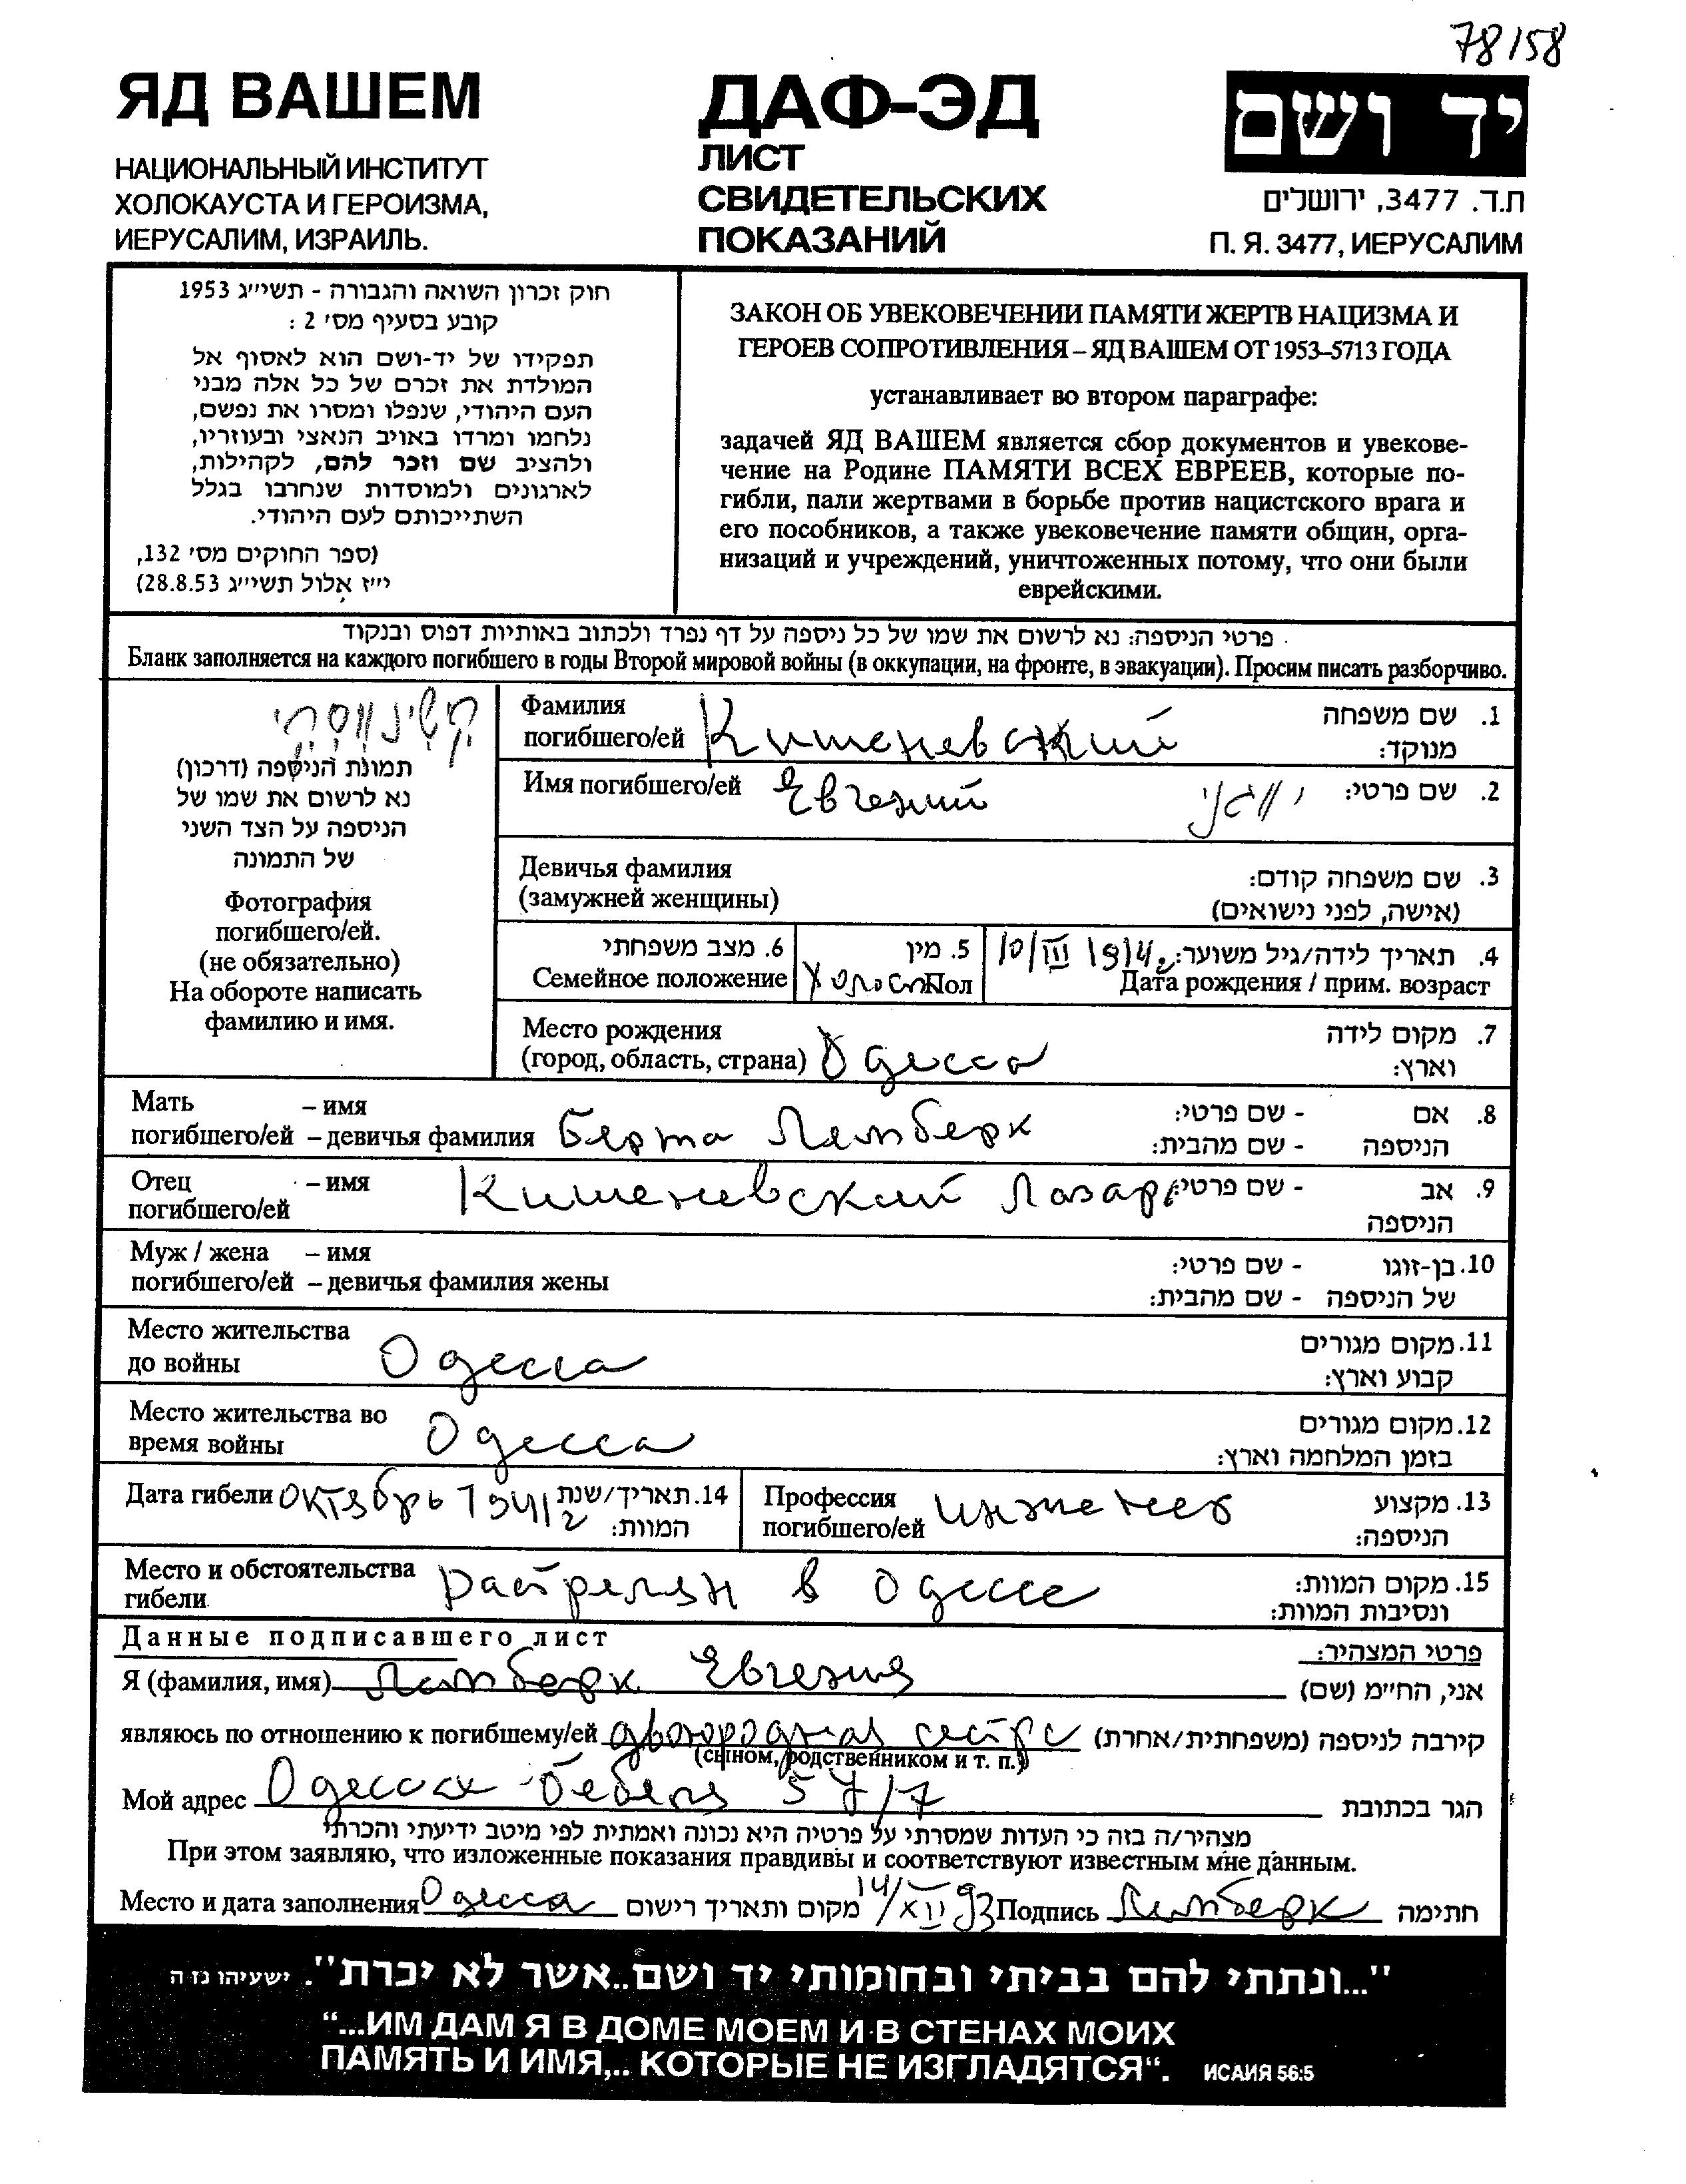 78/158
ЯД ВАШЕМ
НАЦИОНАЛЬНЫЙ ИНСТИТУТ
ХОЛОКАУСТА И ГЕРОИЗМА,
ИЕРУСАЛИМ, ИЗРАИЛЬ.
ДАФ-ЭД
ЛИСТ
СВИДЕТЕЛЬСКИХ
ПОКАЗАНИЙ
יד ושם
ת.ד. 3477, ירושלים
П. Я. 3477, ИЕРУСАЛИМ
חוק זכרון השואה והגבורה - תשי״ג 1953
קובע בסעיף מס׳ 2 :
תפקידו של יד-ושם הוא לאסוף אל
המולדת את זכרם של כל אלה מבני
העם היהודי, שנפלו ומסרו את נפשם,
נלחמו ומרדו באויב הנאצי ובעוזריו,
ולהציב שם וזכר להם, לקהילות,
לארגונים ולמוסדות שנחרבו בגלל
השתייכותם לעם היהודי.
(ספר החוקים מס׳ 132,
י״ז אלול תשי״ג 28.8.53)
ЗАКОН ОБ УВЕКОВЕЧЕНИИ ПАМЯТИ ЖЕРТВ НАЦИЗМА И
ГЕРОЕВ СОПРОТИВЛЕНИЯ – ЯД ВАШЕМ ОТ 1953–5713 ГОДА
устанавливает во втором параграфе:
задачей ЯД ВАШЕМ является сбор документов и увекове-
чение на Родине ПАМЯТИ ВСЕХ ЕВРЕЕВ, которые по-
гибли, пали жертвами в борьбе против нацистского врага и
его пособников, а также увековечение памяти общин, орга-
низаций и учреждений, уничтоженных потому, что они были
еврейскими.
פרטי הניספה: נא לרשום את שמו של כל ניספה על דף נפרד ולכתוב באותיות דפוס ובנקוד
Бланк заполняется на каждого погибшего в годы Второй мировой войны (в оккупации, на фронте, в эвакуации). Просим писать разборчиво.
תמונת הניספה (דרכון)
נא לרשום את שמו של
הניספה על הצד השני
של התמונה
Фотография
погибшего/ей.
(не обязательно)
На обороте написать
фамилию и имя.
Фамилия
погибшего/ей Кишеневский
1. שם משפחה
מנוקד:
Имя погибшего/ей Евгений
2. שם פרטי: יווגני
Девичья фамилия
(замужней женщины)
3. שם משפחה קודם:
(אישה, לפני נישואים)
4. תאריך לידה/גיל משוער: 10/III 1914
Дата рождения / прим. возраст
5. מין
Пол
6. מצב משפחתי
Семейное положение холост
Место рождения
(город, область, страна) Одесса
7. מקום לידה
וארץ:
Мать – имя
погибшего/ей – девичья фамилия Берта Лемберк
8. אם - שם פרטי:
הניספה - שם מהבית:
Отец – имя
погибшего/ей Кишеневский Лазарь
9. אב - שם פרטי:
הניספה
Муж / жена – имя
погибшего/ей – девичья фамилия жены
10. בן-זוגו - שם פרטי:
של הניספה - שם מהבית:
Место жительства
до войны Одесса
11. מקום מגורים
קבוע וארץ:
Место жительства во
время войны Одесса
12. מקום מגורים
בזמן המלחמה וארץ:
Дата гибели октябрь 1941 г
14. תאריך/שנת
המוות:
Профессия
погибшего/ей инженер
13. מקצוע
הניספה:
Место и обстоятельства
гибели растрелян в Одессе
15. מקום המוות:
ונסיבות המוות:
Данные подписавшего лист
פרטי המצהיר:
Я (фамилия, имя) Лемберк Евгения אני, הח״מ (שם)
являюсь по отношению к погибшему/ей двоюродная сестра קירבה לניספה (משפחתית/אחרת)
(сыном, родственником и т. п.)
Мой адрес Одесса Бебеля 57/7 הגר בכתובת
מצהיר/ה בזה כי העדות שמסרתי על פרטיה היא נכונה ואמתית לפי מיטב ידיעתי והכרתי
При этом заявляю, что изложенные показания правдивы и соответствуют известным мне данным.
Место и дата заполнения Одесса מקום ותאריך רישום 14/XII 93 Подпись Лемберк חתימה
"...ונתתי להם בביתי ובחומותי יד ושם..אשר לא יכרת". ישעיהו נז ה
“...ИМ ДАМ Я В ДОМЕ МОЕМ И В СТЕНАХ МОИХ
ПАМЯТЬ И ИМЯ,.. КОТОРЫЕ НЕ ИЗГЛАДЯТСЯ“. ИСАИЯ 56:5